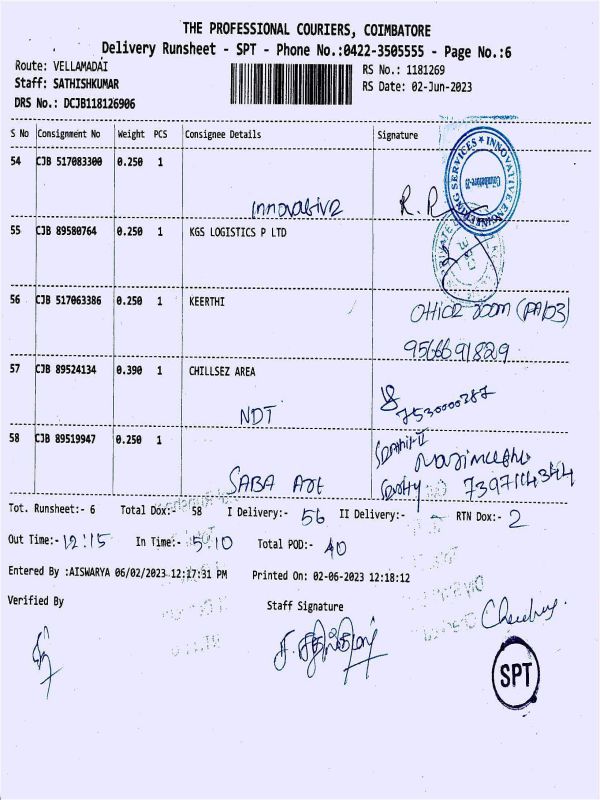 THE PROFESSIONAL COURIERS, COIMBATORE
Delivery Runsheet - SPT - Phone No.:0422-3505555 - Page No.:6
Route: VELLAMADAI RS No.: 1181269
Staff: SATHISHKUMAR RS Date: 02-Jun-2023
DRS No.: DCJB118126906
S No Consignment No Weight PCS Consignee Details Signature
54 CJB 517083300 0.250 1
Innovative R.R
INNOVATIVE ENGINEERING SERVICES
55 CJB 89580764 0.250 1 KGS LOGISTICS P LTD
56 CJB 517063386 0.250 1 KEERTHI office room
9566691829
57 CJB 89524134 0.390 1 CHILLSEZ AREA
NDT 7530000287
58 CJB 89519947 0.250 1
SABA Art
Tot. Runsheet:- 6 Total Dox:- 58 I Delivery:- 56 II Delivery:- - RTN Dox:- 2
Out Time:- 12:15 In Time:- 5:10 Total POD:- 40
Entered By :AISWARYA 06/02/2023 12:17:31 PM Printed On: 02-06-2023 12:18:12
Verified By Staff Signature
SPT